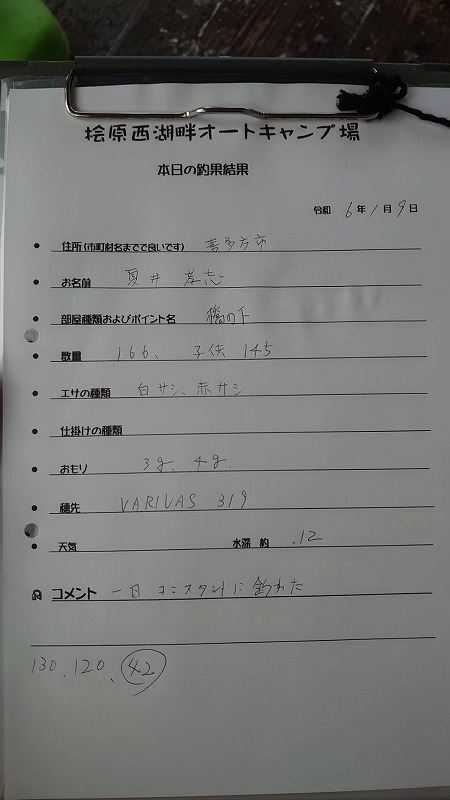 桧原西湖畔オートキャンプ場
本日の釣果結果
令和 6年1月9日
● 住所(市町村名までで良いです) 喜多方市
● お名前 夏井
● 部屋種類およびポイント名 橋の下
● 数量 166、子供 145
● エサの種類 白サシ、赤サシ
● 仕掛けの種類
● おもり 3g、4g.
● 穂先 VARIVAS 319
● 天気 水深 約 .12
コメント 一日 コンスタントに釣れた
130、120、42